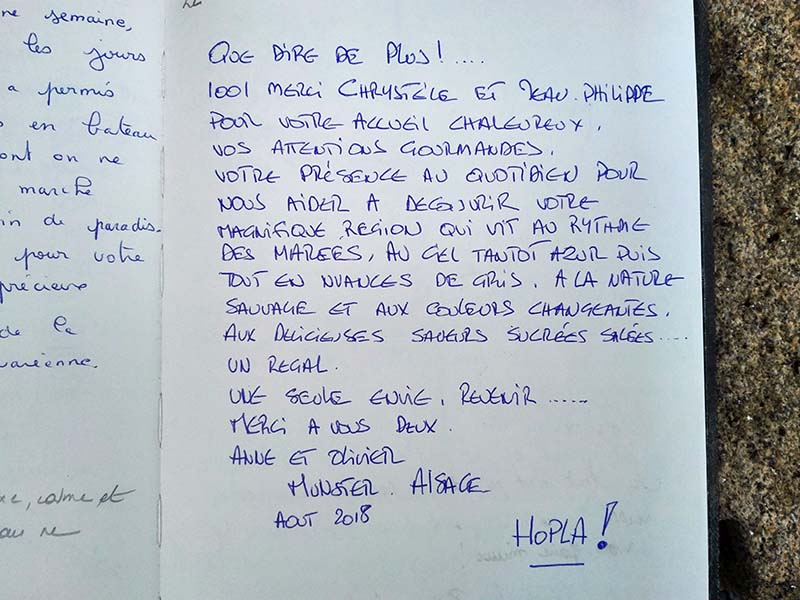 ne semaine,
les jours
a permis
en bateau
ont on ne
marche
in de paradis.
pour votre
précieux
de la
QUE DIRE DE PLUS !....
1001 MERCI CHRYSTÈLE ET JEAN.PHILIPPE
POUR VOTRE ACCUEIL CHALEUREUX,
VOS ATTENTIONS GOURMANDES,
VOTRE PRÉSENCE AU QUOTIDIEN POUR
NOUS AIDER A DECOUVRIR VOTRE
MAGNIFIQUE REGION QUI VIT AU RYTHME
DES MAREES, AU CIEL TANTOT AZUR PUIS
TOUT EN NUANCES DE GRIS, A LA NATURE
SAUVAGE ET AUX COULEURS CHANGEANTES,
AUX DELICIEUSES SAVEURS SUCRÉES SALÉES....
UN REGAL.
UNE SEULE ENVIE, REVENIR......
MERCI A VOUS DEUX.
ANNE ET OLIVIER
MUNSTER. ALSACE
AOUT 2018
HOPLA !
calme et
ne